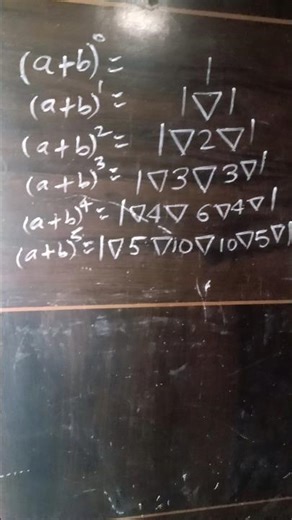 (a+b)⁰= 1
(a+b)¹= 1▽1
(a+b)²= 1▽2▽1
(a+b)³= 1▽3▽3▽1
(a+b)⁴= 1▽4▽6▽4▽1
(a+b)⁵=1▽5▽10▽10▽5▽1